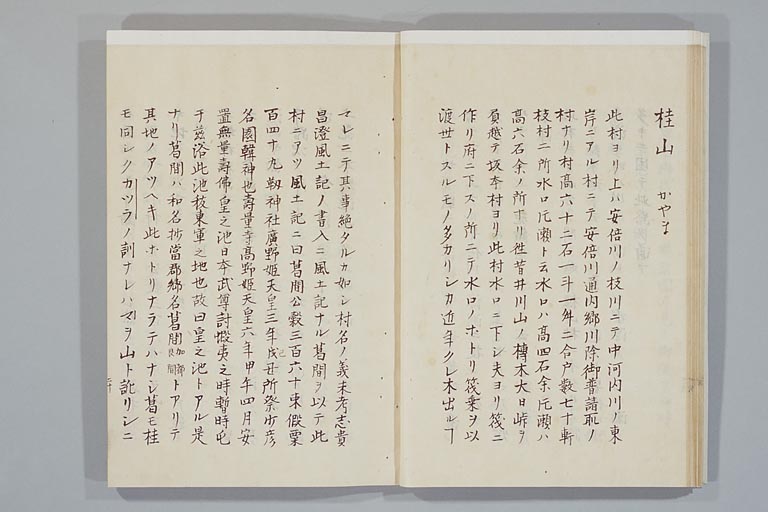 桂山 かやま
此村ヨリ上ハ安倍川ノ枝川ニテ中河内川ノ東
岸ニアル村ニテ安倍川通内郷川除御普請取ノ
村ナリ村高六十二石一斗一舛二合戸数七十軒
枝村二所水口広瀬ト云水口ハ高四石余広瀬ハ
高六石余ノ所ナリ徃昔井川山ノ槫木大日峠ヲ
負越テ坂本村ヨリ此村水口ニ下シ夫ヨリ筏ニ
作リ府ニ下スノ所ニテ水口ノホトリ筏乗ヲ以
渡世トスルモノ多カリシカ近年クレ木出ルヿ
マレニテ其事絶タルカ如シ村名ノ義未考志貴
昌澄風土記ノ書入ニ風土記ナル葛間ヲ以テ此
村ニアツ風土記ニ曰葛間公穀三百六十束假粟
百四十九靭神社廣野姫天皇三年戊丑所祭少彦
名園韓神也壽量寺高野姫天皇六年甲午四月安
置無量壽佛皇之池日本武尊討蝦夷之時暫時屯
于茲浴此池校東軍之地也故曰皇之池トアル是
ナリ葛間ハ和名抄當郡郷名葛間加都良間トアリテ
其地ノアツヘキ此ホトリナラテハナシ葛モ桂
モ同シクカツラノ訓ナレハマヲ山ト訛リシニ